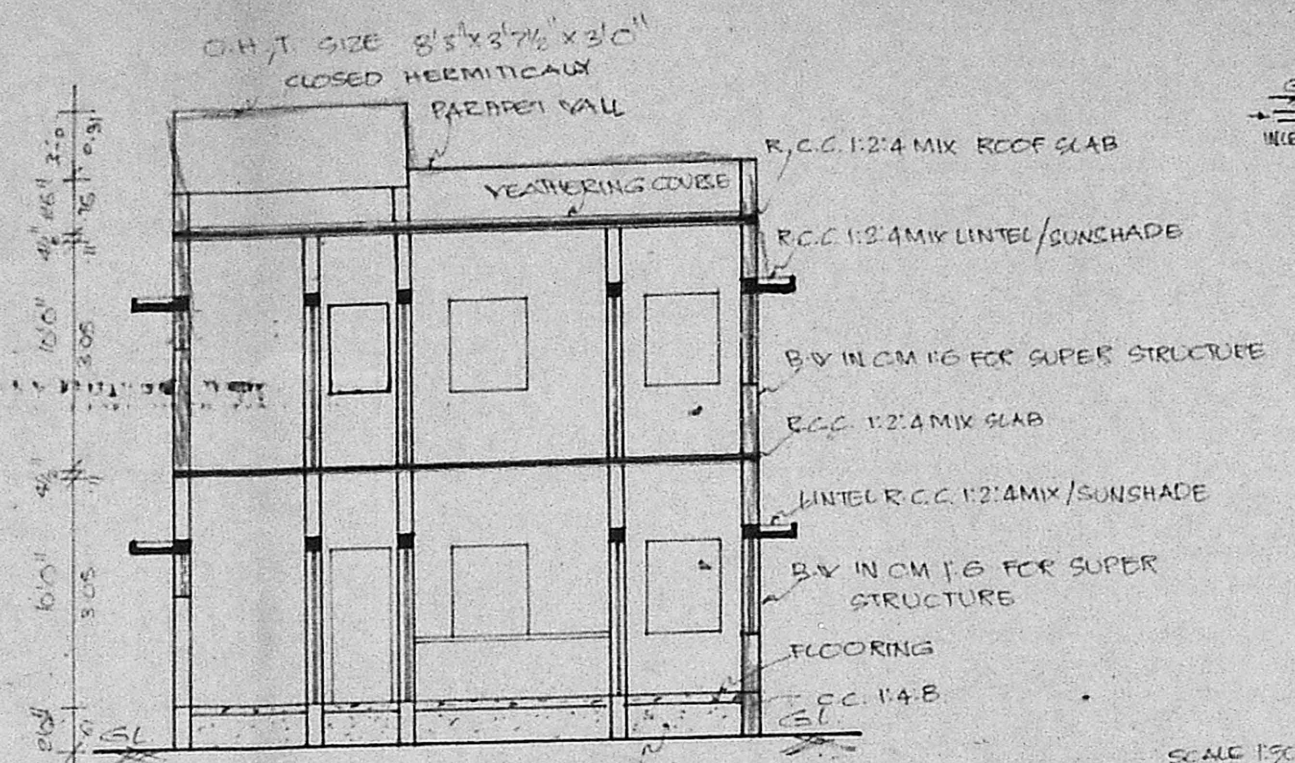 O.H.T. SIZE 8'3"x3'7½"x3'0"
CLOSED HERMITICALY
PARAPET WALL
R.C.C. 1:2:4 MIX ROOF SLAB
WEATHERING COURSE
R.C.C. 1:2:4 MIX LINTEL/SUNSHADE
B.W IN CM 1:6 FOR SUPER STRUCTURE
R.C.C. 1:2:4 MIX SLAB
LINTEL R.C.C. 1:2:4 MIX/SUNSHADE
B.W IN CM 1:6 FOR SUPER
STRUCTURE
FLOORING
C.C. 1:4:8
GL
GL
3'-0"
0.91
.76
4½"
.11
10'0"
3.05
4½"
.11
10'0"
3.05
2'6"